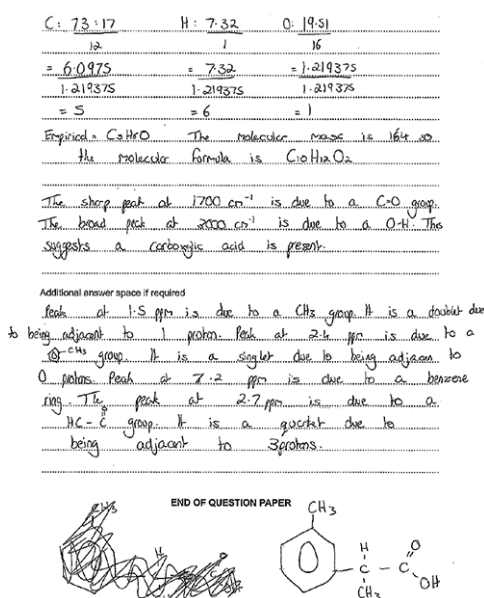 C: 73.17 H: 7.32 O: 19.51
12 1 16
= 6.0975 = 7.32 = 1.219375
1.219375 1.219375 1.219375
= 5 = 6 = 1
Empirical = C5H6O The molecular mass is 164 so
the molecular formula is C10H12O2
The sharp peak at 1700 cm⁻¹ is due to a C=O group.
The broad peak at 3000 cm⁻¹ is due to a O-H. This
suggests a carboxylic acid is present.
Additional answer space if required
Peak at 1.5 ppm is due to a CH3 group. It is a doublet due
to being adjacent to 1 proton. Peak at 2.4 ppm is due to a
CH3 group. It is a singlet due to being adjacent to
0 protons. Peak at 7.2 ppm is due to a benzene
ring. The peak at 2.7 ppm is due to a
O
HC - C group. It is a quartet due to
being adjacent to 3 protons.
END OF QUESTION PAPER
CH3
H O
C - C
CH3 OH